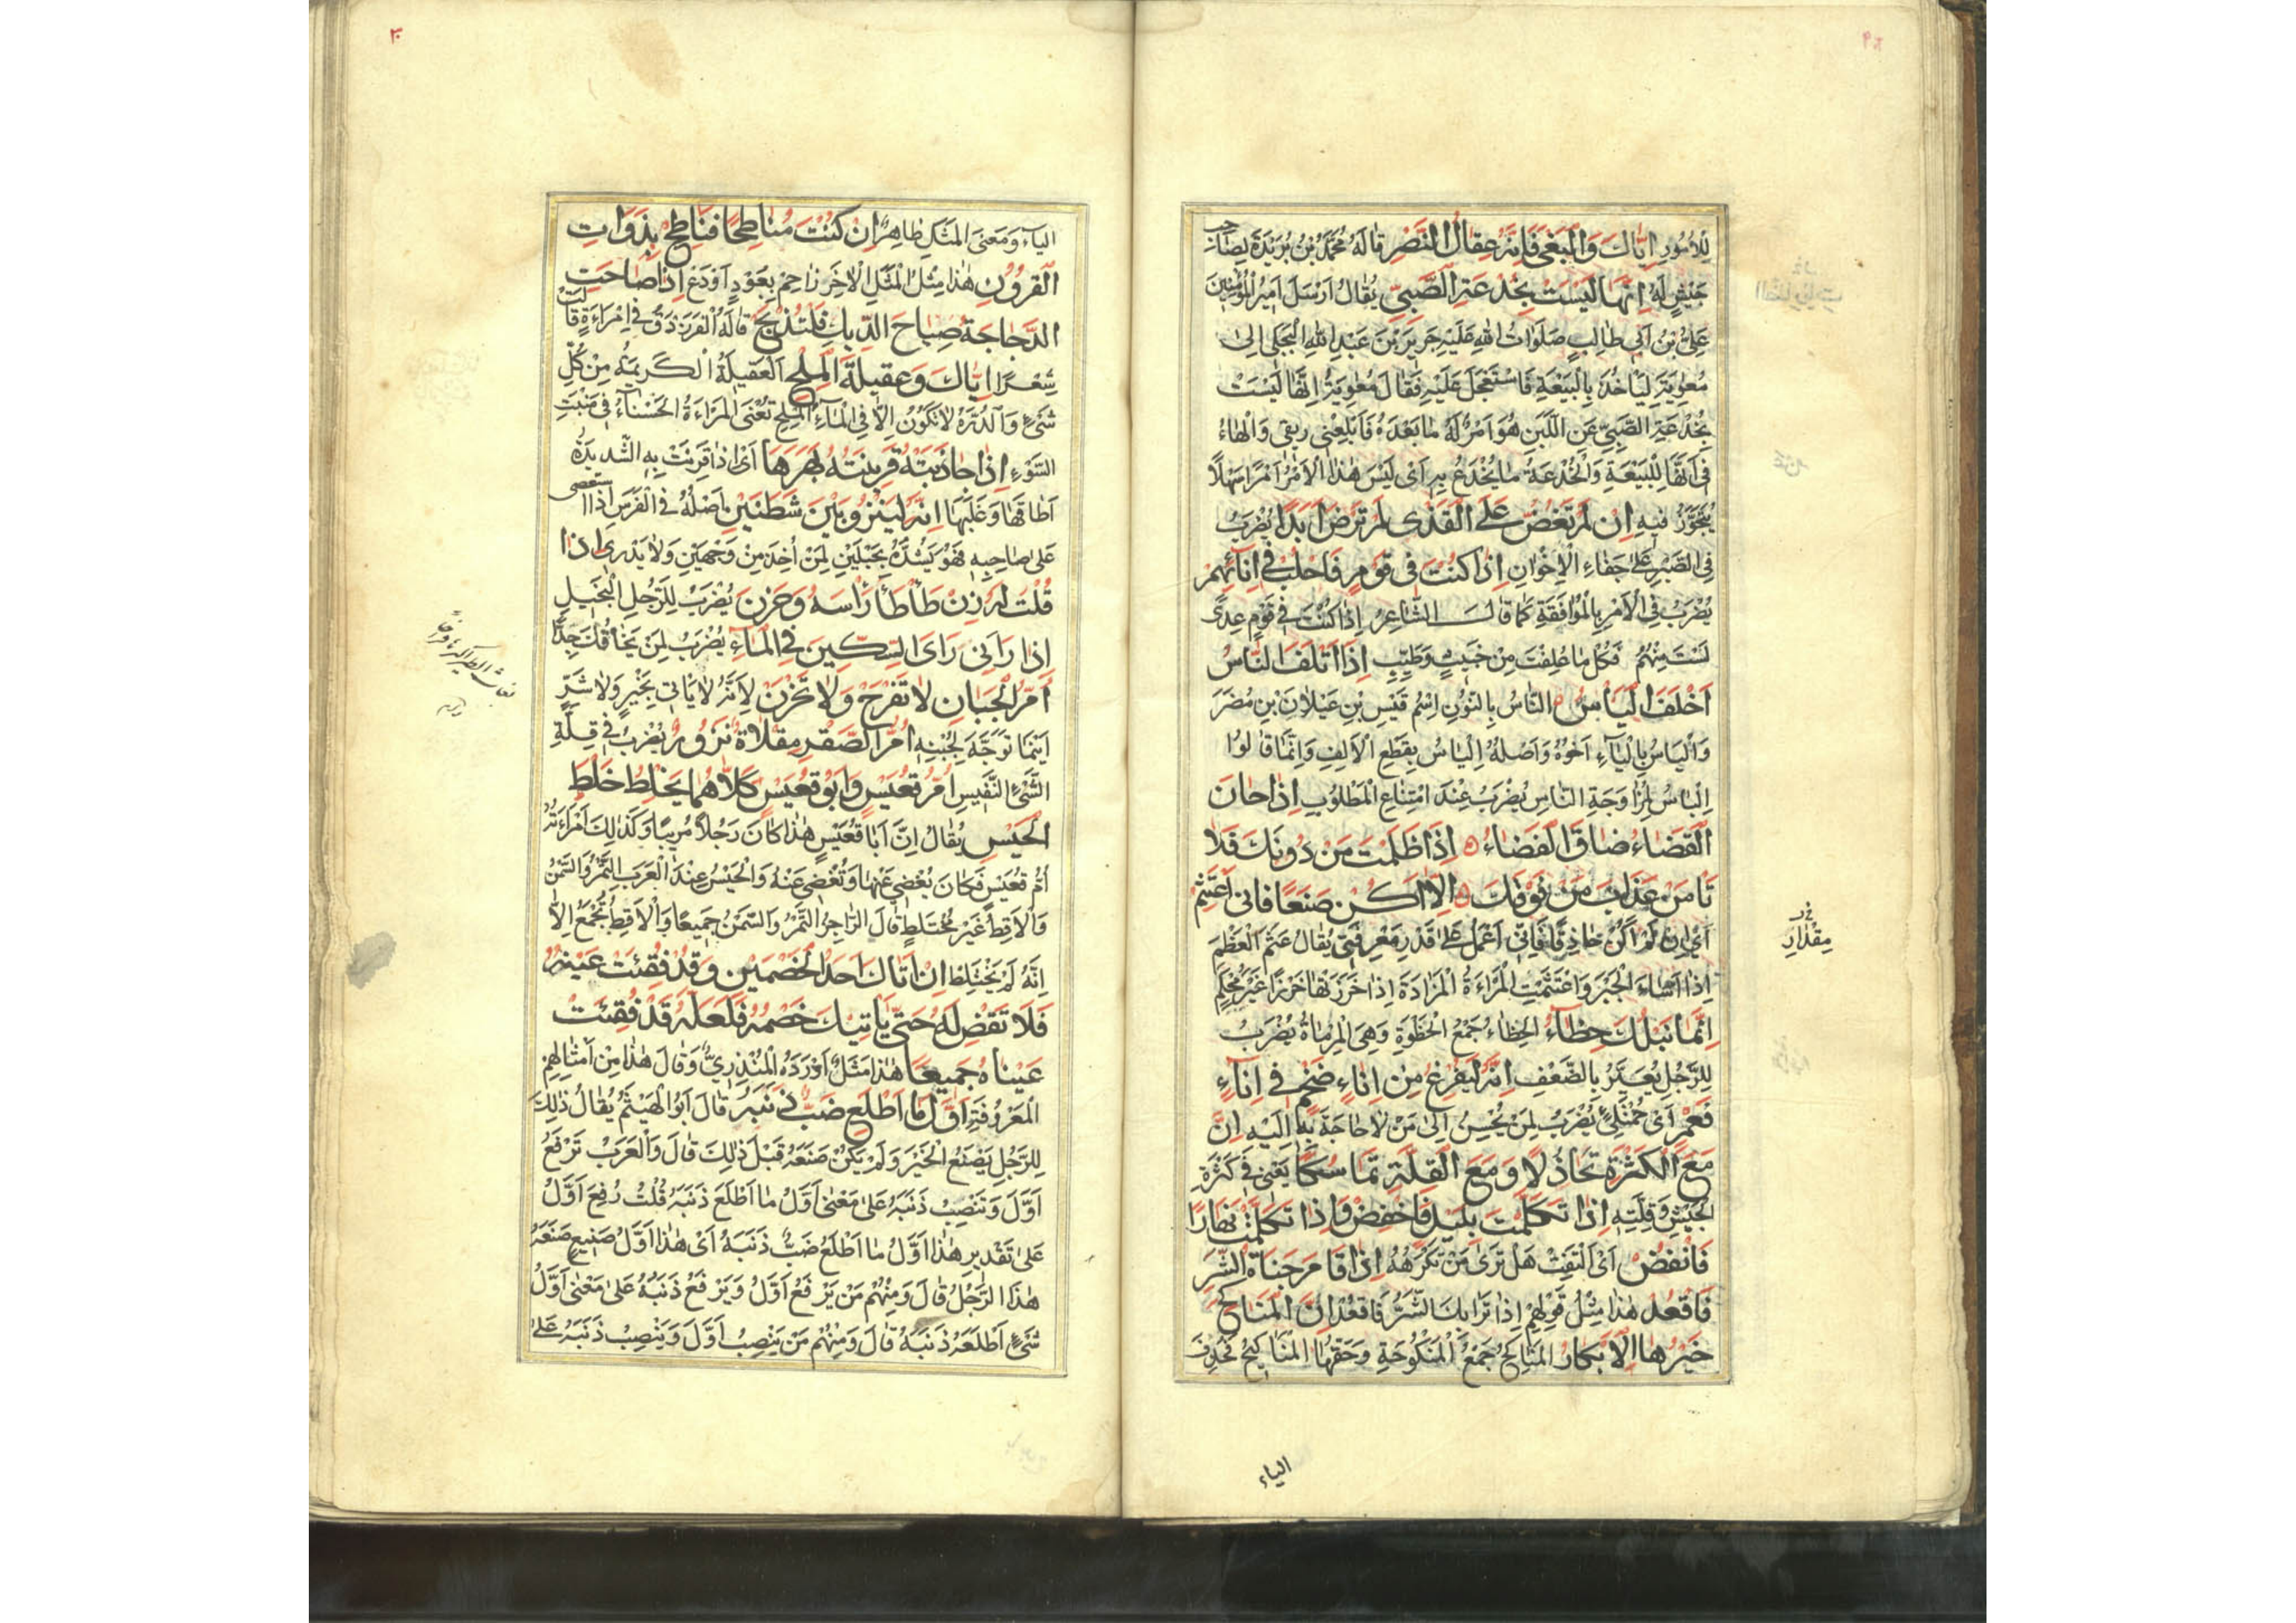 ٢٩
للامور اِيّاكَ وَالْبَغْيَ فَاِنَّهُ عِقالُ النَّصْرِ قالَهُ مُحَمَّدُ بْنُ بُرَيْدَةَ لِصاحِبِ
جَيْشٍ لَهُ اِنَّها لَيْسَتْ بِخُدْعَةِ الصَّبِيِّ يُقالُ اَرْسَلَ اَمِيرُ الْمُؤْمِنِينَ
عَلِيُّ بْنُ اَبي طالِبٍ صَلَواتُ اللهِ عَلَيْهِ جَرِيرَ بْنَ عَبْدِ اللهِ الْبَجَلي اِلىٰ
مُعٰوِيَةَ لِيَأخُذَ بِالْبَيْعَةِ فَاسْتَعْجَلَ عَلَيْهِ فَقالَ مُعٰوِيَةُ اِنَّها لَيْسَتْ
بِخُدْعَةِ الصَّبِيِّ عَنِ اللَّبَنِ هُوَ اَمْرٌ لَهُ ما بَعْدَهُ فَاَبْلِعْني ريقي وَالْهاءُ
في اَنَّها لِلْبَيْعَةِ وَالْخُدْعَةُ ما يُخْدَعُ بِهِ اَيْ لَيْسَ هٰذَا الْاَمْرُ اَمْرًا سَهْلًا
يُتَجَوَّزُ فيهِ اِنْ لَمْ تَغُضَّ عَلَى الْقَذى لَمْ تَرْضَ اَبَدًا يُضْرَبُ
فِي الصَّبْرِ عَلىٰ جَفاءِ الْاِخْوانِ اِذا كُنْتَ في قَوْمٍ فَاحْلُبْ في اِنائِهِمْ
يُضْرَبُ فِي الْاَمْرِ بِالْمُوافَقَةِ كَما قالَ الشّاعِرُ اِذا كُنْتَ في قَوْمٍ عِدًى
لَسْتَ مِنْهُمْ فَكُلْ ما عُلِفْتَ مِنْ خَبيثٍ وَطَيِّبِ اِذا اَتْلَفَ النّاسُ
اَخْلَفَ الْيَاسُ النّاسُ بِالنُّونِ اِسْمُ قَيْسِ بْنِ عَيْلانَ بْنِ مُضَرَ
وَالْيَاسُ بِالْياءِ اَخُوهُ وَاَصْلُهُ اِلْياسُ بِقَطْعِ الْاَلِفِ وَاِنَّما قالُوا
اِلْياسُ لِمُزاوَجَةِ النّاسِ يُضْرَبُ عِنْدَ امْتِناعِ الْمَطْلُوبِ اِذا حانَ
الْقَضاءُ ضاقَ الْفَضاءُ اِذا ظَلَمْتَ مَنْ دُونَكَ فَلا
تَأمَنْ عَذابَ مَنْ فَوْقَكَ اِلّا اَكُنْ صَنَعًا فَاِنّي اَعْتَثِمُ
اَيْ اِنْ لَمْ اَكُنْ حاذِقًا فَاِنّي اَعْمَلُ عَلىٰ قَدْرِ مَعْرِفَتي يُقالُ عَثَمَ الْعَظْمَ
اِذا اَساءَ الْجَبْرَ وَاعْتَثَمَتِ الْمَرْاَةُ الْمَزادَةَ اِذا خَرَزَتْها خَرْزًا غَيْرَ مُحْكَمٍ
اِنَّما نَبْلُكَ حِظاءٌ الحِظاءُ جَمْعُ الْحَظْوَةِ وَهِيَ الْمِرْماةُ يُضْرَبُ
لِلرَّجُلِ يُعَيَّرُ بِالضَّعْفِ اِنَّهُ لَيُفْرِغُ مِنْ اِناءٍ ضَخْمٍ في اِناءٍ
فَعْمٍ اَيْ مُمْتَلِئٍ يُضْرَبُ لِمَنْ يُحْسِنُ اِلىٰ مَنْ لا حاجَةَ بِهِ اِلَيْهِ اِنَّ
مَعَ الْكَثْرَةِ تَخاذُلًا وَمَعَ الْقِلَّةِ تَماسُكًا يَعْني في كَثْرَةِ
الْجَيْشِ وَقِلَّتِهِ اِذا تَكَلَّمْتَ بِلَيْلٍ فَاخْفِضْ وَاِذا تَكَلَّمْتَ نَهارًا
فَانْفُضْ اَيْ اَلْتَفِتْ هَلْ تَرىٰ مَنْ تَكْرَهُهُ اِذا قامَ جُناةُ الشَّرِّ
فَاقْعُدْ هٰذا مِثْلُ قَوْلِهِمْ اِذا نَزا بِكَ الشَّرُّ فَاقْعُدْ اِنَّ الْمَناكِحَ
خَيْرُها الْاَبْكارُ المَناكِحُ جَمْعُ الْمَنْكُوحَةِ وَحَقُّها الْمَناكيحُ فَحُذِفَ
مِقْدارِ
الياء
٣٠
الياءُ وَمَعْنَى الْمَثَلِ ظاهِرٌ اِنْ كُنْتَ مُناطِحًا فَناطِحْ بِذَواتِ
الْقُرُونِ هٰذا مِثْلُ الْمَثَلِ الْاٰخَرِ زاحِمْ بِعَوْدٍ اَوْدَعْ اِذا صاحَتِ
الدَّجاجَةُ صِياحَ الدّيكِ فَلْتُذْبَحْ قالَهُ الْفَرَزْدَقُ في اِمْرَاَةٍ قالَتْ
شِعْرًا اِيّاكَ وَعَقيلَةَ الْمِلْحِ الْعَقيلَةُ الْكَريمَةُ مِنْ كُلِّ
شَيْءٍ وَالدُّرَّةُ لا تَكُونُ اِلّا فِي الْماءِ الْمِلْحِ تَعْنِي الْمَرْاَةَ الْحَسْناءَ في مَنْبِتِ
السَّوْءِ اِذا جاذَبَتْهُ قَرينَتُهُ بَهَرَها اَيْ اِذا قُرِنَتْ بِهِ الشَّديدَةُ
اَطاقَها وَغَلَبَها اِنَّهُ لَيَنْزُو بَيْنَ شَطَنَيْنِ اَصْلُهُ فِي الْفَرَسِ اِذَا اسْتَعْصى
عَلىٰ صاحِبِهِ فَهُوَ يَشُدُّهُ بِحَبْلَيْنِ لِمَنْ اُخِذَ مِنْ وَجْهَيْنِ وَلا يَدْري اِذا
قُلْتَ لَهُ زِنْ طَأطَأ رَأسَهُ وَحَزِنَ يُضْرَبُ لِلرَّجُلِ الْبَخيلِ
اِذا رَاٰني رَاَى السِّكّينَ فِي الْماءِ يُضْرَبُ لِمَنْ يَخافُكَ جِدًّا
اُمُّ الْجَبانِ لا تَفْرَحُ وَلا تَحْزَنُ لِاَنَّهُ لا يَاْتي بِخَيْرٍ وَلا شَرٍّ
اَيْنَما تَوَجَّهَ لِجُبْنِهِ اُمُّ الصَّقْرِ مِقْلاةٌ نَزُورٌ يُضْرَبُ في قِلَّةِ
الشَّيْءِ النَّفيسِ اُمُّ قُعَيْسٍ وَاَبُو قُعَيْسٍ كِلاهُما يَخْلِطُ خَلْطَ
الْحَيْسِ يُقالُ اِنَّ اَبا قُعَيْسٍ هٰذا كانَ رَجُلًا مُريبًا وَكَذٰلِكَ امْرَاَتُهُ
اُمُّ قُعَيْسٍ فَكانَ يُغْضي عَنْها وَتُغْضي عَنْهُ وَالْحَيْسُ عِنْدَ الْعَرَبِ التَّمْرُ وَالسَّمْنُ
وَالْاَقِطُ غَيْرَ مُخْتَلِطٍ قالَ الرّاجِزُ التَّمْرُ وَالسَّمْنُ جَميعًا وَالْاَقِطُ تَجْمَعُ اِلّا
اِنَّهُ لَمْ يَخْتَلِطْ اِنْ اَتاكَ اَحَدُ الْخَصْمَيْنِ وَقَدْ فُقِئَتْ عَيْنُهُ
فَلا تَقْضِ لَهُ حَتّى يَأتِيَكَ خَصْمُهُ فَلَعَلَّهُ قَدْ فُقِئَتْ
عَيْناهُ جَميعًا هٰذا مَثَلٌ اَوْرَدَهُ الْمُنْذِرِيُّ وَقالَ هٰذا مِنْ اَمْثالِهِمِ
الْمَعْرُوفَةِ اَوَّلُ ما اَطْلَعَ ضَبٌّ ذَنَبَهُ قالَ اَبُو الْهَيْثَمِ يُقالُ ذٰلِكَ
لِلرَّجُلِ يَصْنَعُ الْخَيْرَ وَلَمْ يَكُنْ صَنَعَهُ قَبْلَ ذٰلِكَ قالَ وَالْعَرَبُ تَرْفَعُ
اَوَّلَ وَتَنْصِبُ ذَنَبَهُ عَلىٰ مَعْنىٰ اَوَّلُ ما اَطْلَعَ ذَنَبَهُ قُلْتُ رُفِعَ اَوَّلُ
عَلىٰ تَقْديرِ هٰذا اَوَّلُ ما اَطْلَعَ ضَبٌّ ذَنَبَهُ اَيْ هٰذا اَوَّلُ صَنيعٍ صَنَعَهُ
هٰذَا الرَّجُلُ قالَ وَمِنْهُمْ مَنْ يَرْفَعُ اَوَّلُ وَيَرْفَعُ ذَنَبُهُ عَلىٰ مَعْنىٰ اَوَّلُ
شَيْءٍ اَطْلَعَهُ ذَنَبُهُ قالَ وَمِنْهُمْ مَنْ يَنْصِبُ اَوَّلَ وَيَنْصِبُ ذَنَبَهُ عَلىٰ